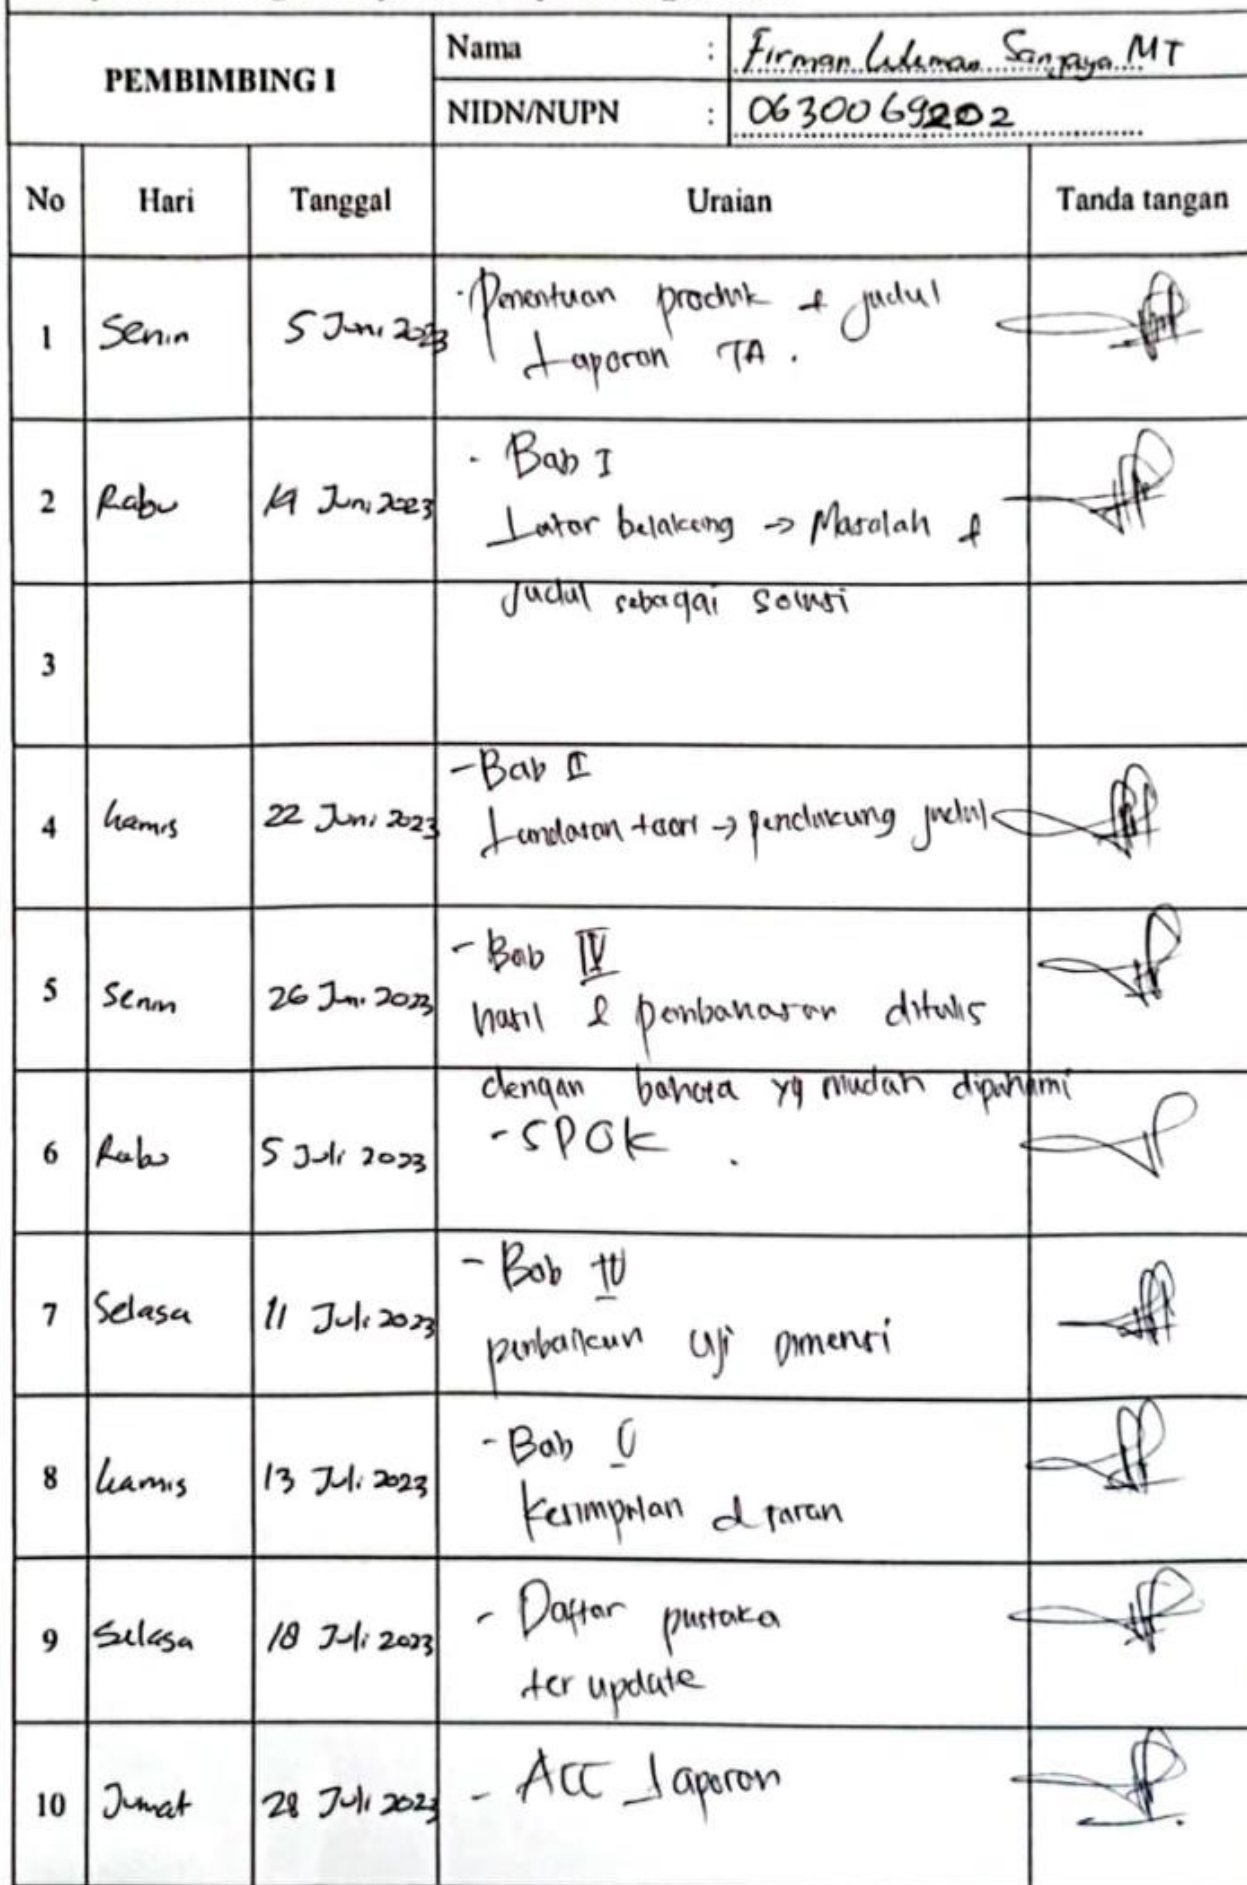 PEMBIMBING I
Nama : Firman Lukman Sanjaya MT
NIDN/NUPN : 0630069202
No Hari Tanggal Uraian Tanda tangan
1 Senin 5 Juni 2023 · Penentuan produk & judul
Laporan TA .
2 Rabu 14 Juni 2023 · Bab I
Latar belakang → Masalah &
Judul sebagai solusi
3
4 kamis 22 Juni 2023 - Bab II
Landasan teori → pendukung judul
5 Senin 26 Juni 2023 - Bab IV
hasil & pembahasan ditulis
dengan bahasa yg mudah dipahami
6 Rabu 5 Juli 2023 - SPOK .
7 Selasa 11 Juli 2023 - Bab IV
perbaikan uji dimensi
8 kamis 13 Juli 2023 - Bab V
kesimpulan & saran
9 Selasa 18 Juli 2023 - Daftar pustaka
ter update
10 Jumat 28 Juli 2023 - ACC Laporan